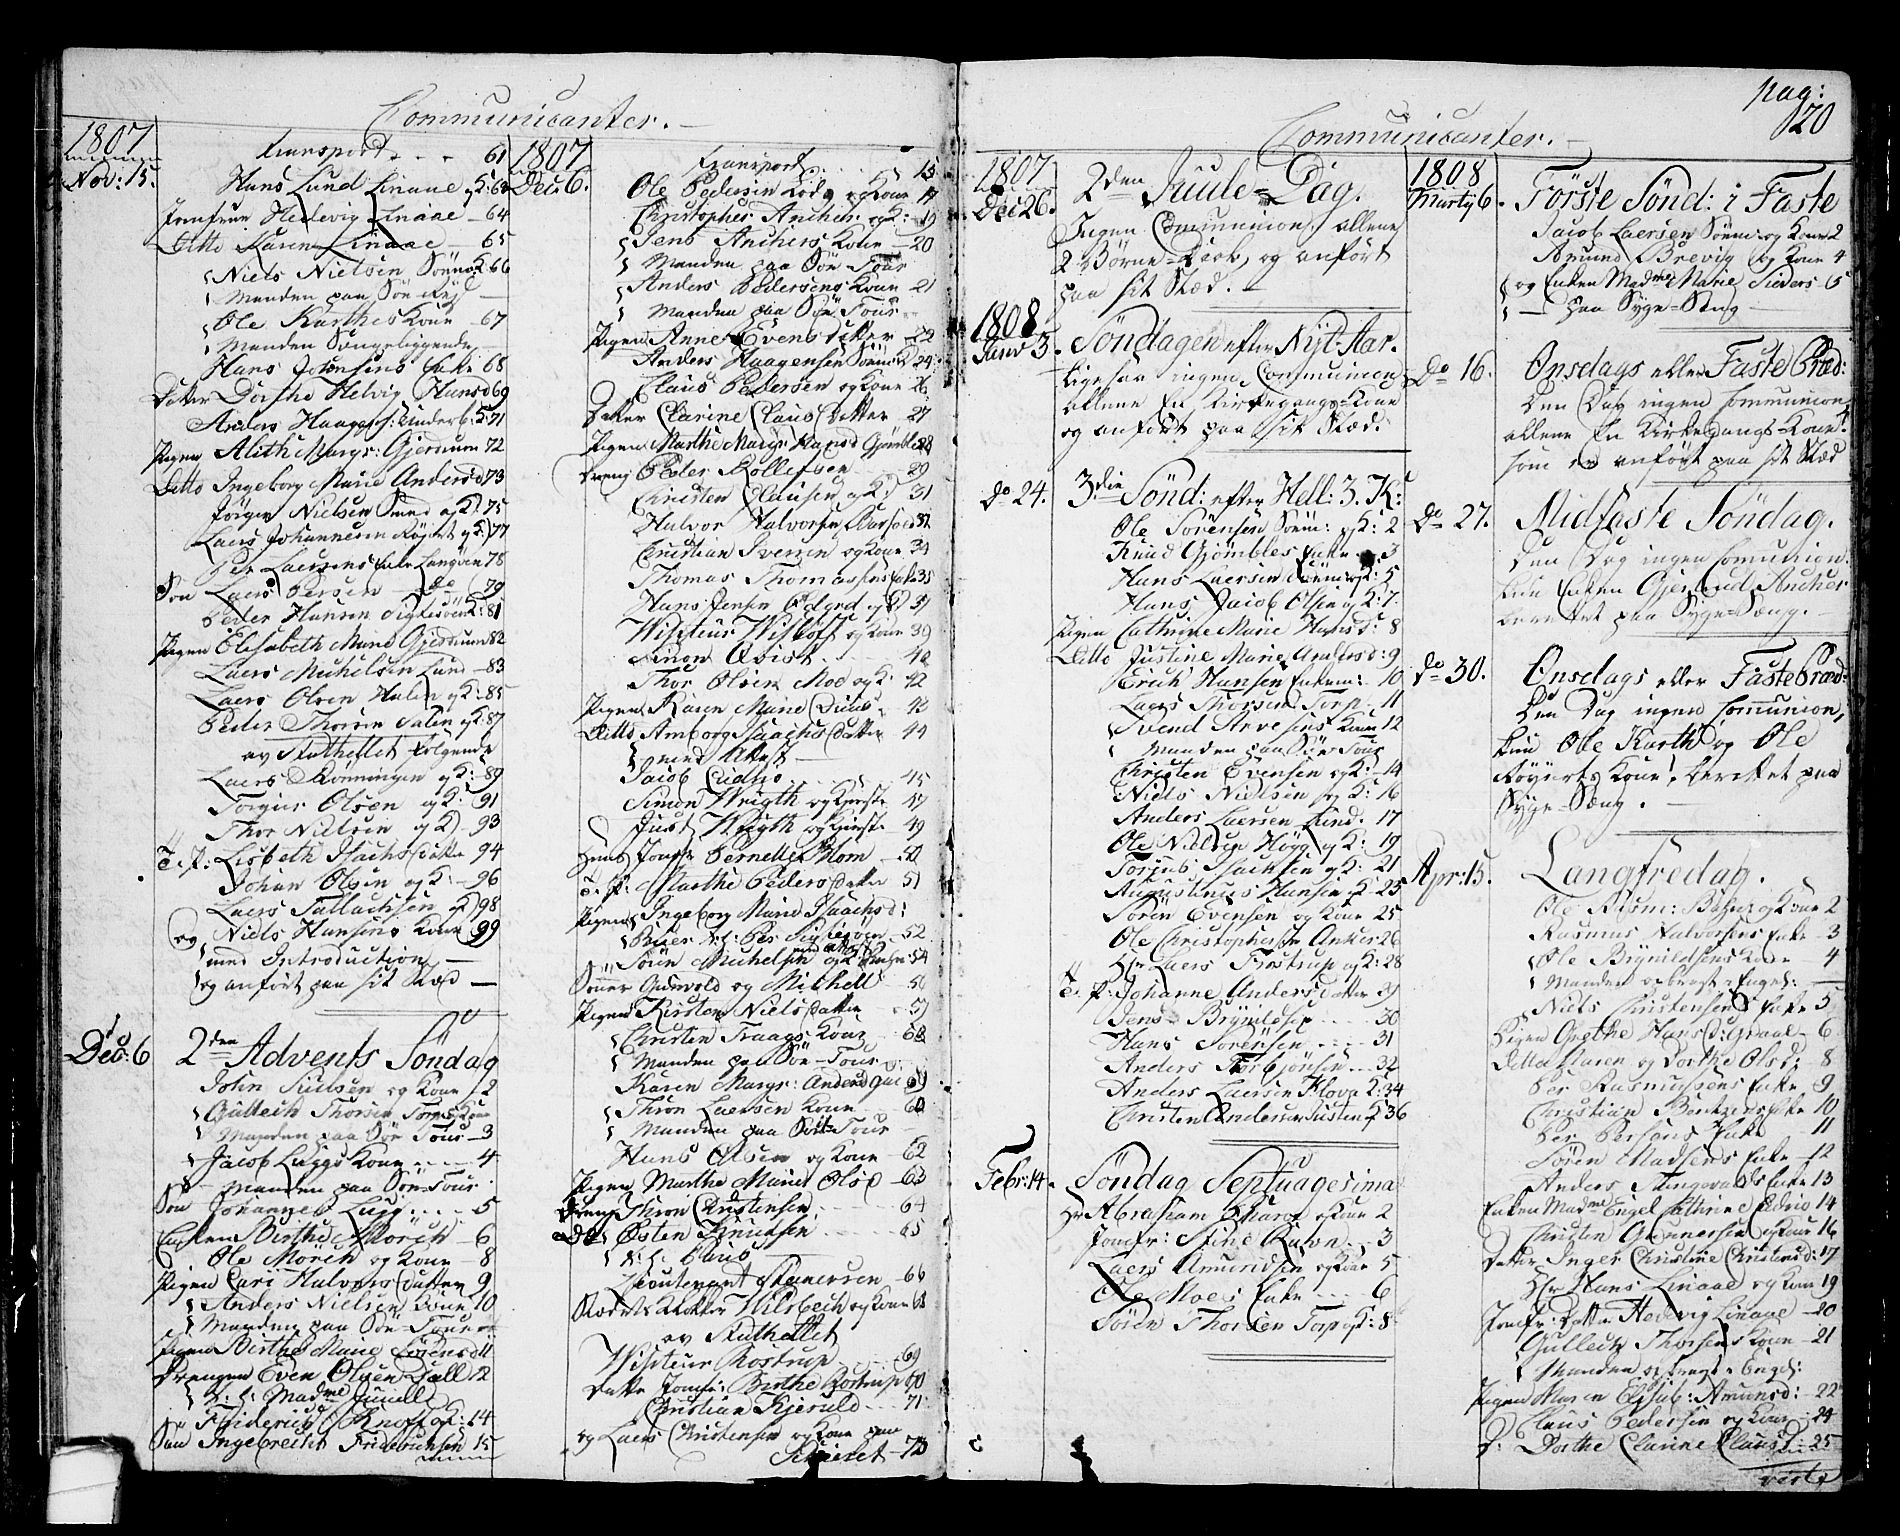 Communicanter.
1807
Nov: 15.
Transport . . . 61
Hans Lund Linaae og K: 63
Jomfrue Hedevig Linaae - 64
Ditto Karen Linaae - 65
Niels Nielsen Sönns K: 66
Manden paa Söe Rejse
Ole Karthes Kone - 67
Manden Sængeliggende
Hans Johansens Enke 68
Datter Dorthe Helvig Hansd 69
Anders Haagens: Tinderb: K: 71
Pigen Alith Margr: Gjersum 72
Ditto Ingeborg Marie Andersd 73
Jörgen Nielsen Smed og K: 75
Laers Johannesen Röjert og K: 77
Per Laersens Enke Langöen 78
Sön Laers Persen - do - 79
Peder Hansen Sigtesöe K: 81
Pigen Elisabeth Marie Gjersum 82
Laers Michelsen Lund - 83
Laers Olsen Halen og K: 85
Peder Thorsen Salen og K: 87
av Stathellet Følgende
Laers Rönningen og K: 89
Torgius Olsen og K: 91
Thor Nielsen og K: - 93
T. P: Lisbeth Isachsdatter 94
Johan Olsen og K: - 96
Laers Tallachsen og K: 98
og Niels Hansens Kone 99
med Introduction
og anfört paa sit Stæd
Dec: 6
2den Advents Söndag
John Juelsen og Kone - 2
Gullech Thorsen Torps Kone
Manden paa Söe Tour - 3
Jacob Luggs Kone . . . . 4
Manden paa Söe-Tour
Sön Johannes Lugg . . . . 5
Enken Birthe Mörch - 6
Ole Mörch og Kone - 8
Pigen Cari Halvorsdatter 9
Anders Nielsen Kone 10
Manden paa Söe-Tour
Pigen Birthe Marie Sörensd 11
Drengen Even Olsen Dall 12
h: h: Madme Juuell
Friderich Knoff og K: 14
Sön Ingebrecht Friderichsen 15
1807
Dec: 6.
Transport . . . 15
Ole Pedersen Lodz og Kone 17
Christopher Anchers: og K: - 19
Jens Anchers Kone - 20
Manden paa Söe Tour
Anders Pedersens Kone 21
Manden paa Söe Tour
Pigen Anne Evensdatter - 22
Anders Haagensen Sönne K 24
Claus Pedersen og Kone 26
Datter Clarine Clausdatter - 27
Pigen Marthe Margr: Hansd Gjömble 28
Dreng Peder Rollefsen - 29
Christen Clausen og K: 31
Halvor Halvorsen
Christian Iversen og Kone 34
Thomas Thomassens Enke 35
Hans Jensen Ødgrd og K: 37
Visiteur Wisløft og Kone 39
Simon Qvist . . . . 40
Thor Olsen Moe og K: 42
Pigen Karen Marie - 43
Ditto Amborg Isaachsdatter 44
med Attest
Jacob . . . . . . 45
Simon Wrigth og Kjerste 47
Just Wrigth og Kjerste 49
Hans Jomfr Pernelle Blom - 50
T. P: Marthe Pedersdatter 51
Pigen Ingeborg Marie Isaachsd:
h: h: Per Sigtesöen - 52
Sören Michelsen og K: 54
Sönner Gudevold og Michell 56
Pigen Kirsten Nielsdatter - 57
Christen Traags Kone - 58
Manden paa Söe-Tour
Karen Margr: Andersd 59
Thron Laersen Kone 60
Manden paa Söe-Tour
Hans Olsen og Kone - 62
Pigen Marthe Marie Olsd - 63
Dreng Thron Christensen . . . 64
do Østen Knudsen . . . 65
Lieutenant Stenersen 66
Stædets Klokker Wilsbech og Kone 68
av Stathellet
Visiteur Rostrup . . . 69
Datter Jomfr: Birthe Rostrup 70
Christian Kjerulf - 71
og Laers Christensen og Kone paa
Schierret - 73
pag:
120
Communicanter.
1807
Dec: 26.
2den Juule-Dag.
Ingen Communion, allene
2 Börne-Daab, og anfört
paa sit Stæd.
1808
Janv 3.
Söndagen efter Nyt-Aar.
Ligesaa ingen Communion
allene En Kirkegangs-Kone
og anfört paa sit Stæd.
Do 24.
3die Sönd: efter Hell: 3. K:
Ole Sörensen Sönn: og K: 2
Knud Gjömbles Enke - 3
Hans Laersen Sönn: og K: 5
Hans Jacob Olsen og K: 7.
Pigen Cathrine Marie Hansd: 8
Ditto Justine Marie Andersd: 9
Erich Hansen Enkem: 10
Laers Thorsen Torp. 11
Svend Arvesens Kone 12
Manden paa Söe Tour
Christen Evensen og K: - 14
Niels Nielsen og K: 16
Anders Laersen Lund. 17
Ole Nielsen Högg og K: 19
Torjus Isachsen og K: 21
Augustinus Hansen og K: 23
Sören Evensen og Kone 25
Ole Christophersen Anker 26
Hr Laers Trostrup og K: 28
T. P: Johanne Andersdatter 29
Jens Brynildsen . . . . 30
Hans Sörensen . . . . 31
Anders Torbjönsen . . 32
Anders Laersen Klova K: 34
Christen Andersen Tusten K 36
Febr: 14.
Söndag Septuagesima
Hr Abraham og Kone 2
Jomfr: Stine . . 3
Laers Amundsen og Kone 5
Ole Moes Enke . . . . 6
Sören Thorsen Torp og K: 8
1808
Marty 6.
Förste Sönd: i Faste
Jacob Laersen Sönn: og Kone 2
Amund Brevig og Kone 4
og Enken Madme Marie Sieders 5
paa Syge-Sæng
Do 16.
Onsdags eller Faste Præd:
Den Dag ingen Communion
allene En Kirkegangs-Kone
som er anfört paa sit Stæd
Do 27.
Midfaste Söndag.
Den Dag ingen Communion.
kun Enken Gjertrud Ancher
berettet paa Syge-Sæng.
Do 30.
Onsdags eller Faste Præd:
Den Dag ingen Communion,
kun Ole Karth og Ole
Röyerts Kone, berettet paa
Syge-Sæng.
Apr: 15.
Langfredag.
Ole Rasm: og Kone 2
Rasmus Halvorsens Enke - 3
Ole Brynildsens Kone - 4
Manden opbragt i Engel:
Niels Christensens Enke 5
Pigen Grethe Hansd: Graae - 6
Ditto Karen og Dorthe Olsd: - 8
Per Rasmussens Enke 9
Christian Bentzens Enke 10
Per Persens Enke 11
Sören Madsens Enke - 12
Anders Stengevolds Enke 13
Enken Madme Engel Cathrine Cedrio 14
Christen Gunnersen og Kone 16
Datter Inger Christine Christensd: 17
Hr Hans Linaae og Kone 19
Jomfr: Datter Hedevig Linaae - 20
Gullech Thorsens Kone - 21
Manden opbragt i Engel:
Pigen Maren Elisab: Amunsd: - 22
Claus Pedersen og Kone - 24
D: Dorthe Clarine Clausd: 25
verte